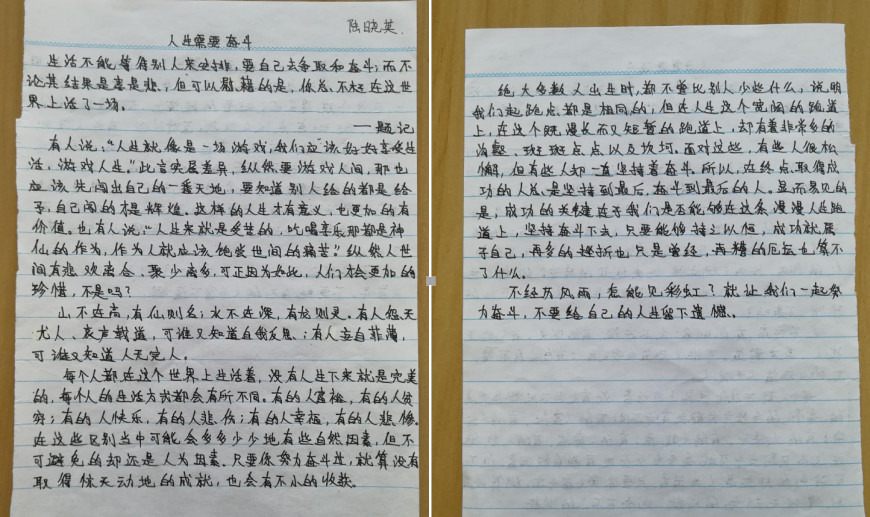 陆晓英
人生需要奋斗
生活不能等待别人来安排,要自己去争取和奋斗;而不
论其结果是喜是悲,但可以慰藉的是,你总不枉在这世
界上活了一场。
——题记
有人说:“人生就像是一场游戏,我们应该好好享受生
活,游戏人生。”此言实属差异,纵然要游戏人间,那也
应该先闯出自己的一番天地,要知道别人给的都是给
予,自己闯的才是辉煌。这样的人生才有意义,也更加的有
价值。也有人说:“人生来就是受苦的,吃喝享乐那都是神
仙的作为,作为人就应该饱尝世间的痛苦。”纵然人世
间有悲欢离合、聚少离多,可正因为如此,人们才会更加的
珍惜,不是吗?
山不在高,有仙则名;水不在深,有龙则灵。有人怨天
尤人、哀声载道,可谁又知道自我反思;有人妄自菲薄,
可谁又知道人无完人。
每个人都在这个世界上生活着,没有人生下来就是完美
的,每个人的生活方式都会有所不同。有的人富裕,有的人贫
穷;有的人快乐,有的人悲伤;有的人幸福,有的人悲惨。
在这些区别当中可能会多多少少地有些自然因素,但不
可避免的却还是人为因素。只要你努力奋斗过,就算没有
取得惊天动地的成就,也会有不小的收获。
绝大多数人出生时,都不曾比别人少些什么,说明
我们起跑点都是相同的,但在人生这个宽阔的跑道
上,在这个既漫长而又短暂的跑道上,却有着非常多的
沟壑、斑斑点点以及坎坷。面对这些,有些人很松
懈,但有些人却一直坚持着奋斗。所以,在终点取得成
功的人总是坚持到最后,奋斗到最后的人。显而易见的
是,成功的关键在于我们是否能够在这条漫漫人生跑
道上,坚持奋斗下去,只要能够持之以恒,成功就属
于自己,再多的挫折也只是曾经,再糟的厄运也算不
了什么。
不经历风雨,怎能见彩虹?就让我们一起努
力奋斗,不要给自己的人生留下遗憾。